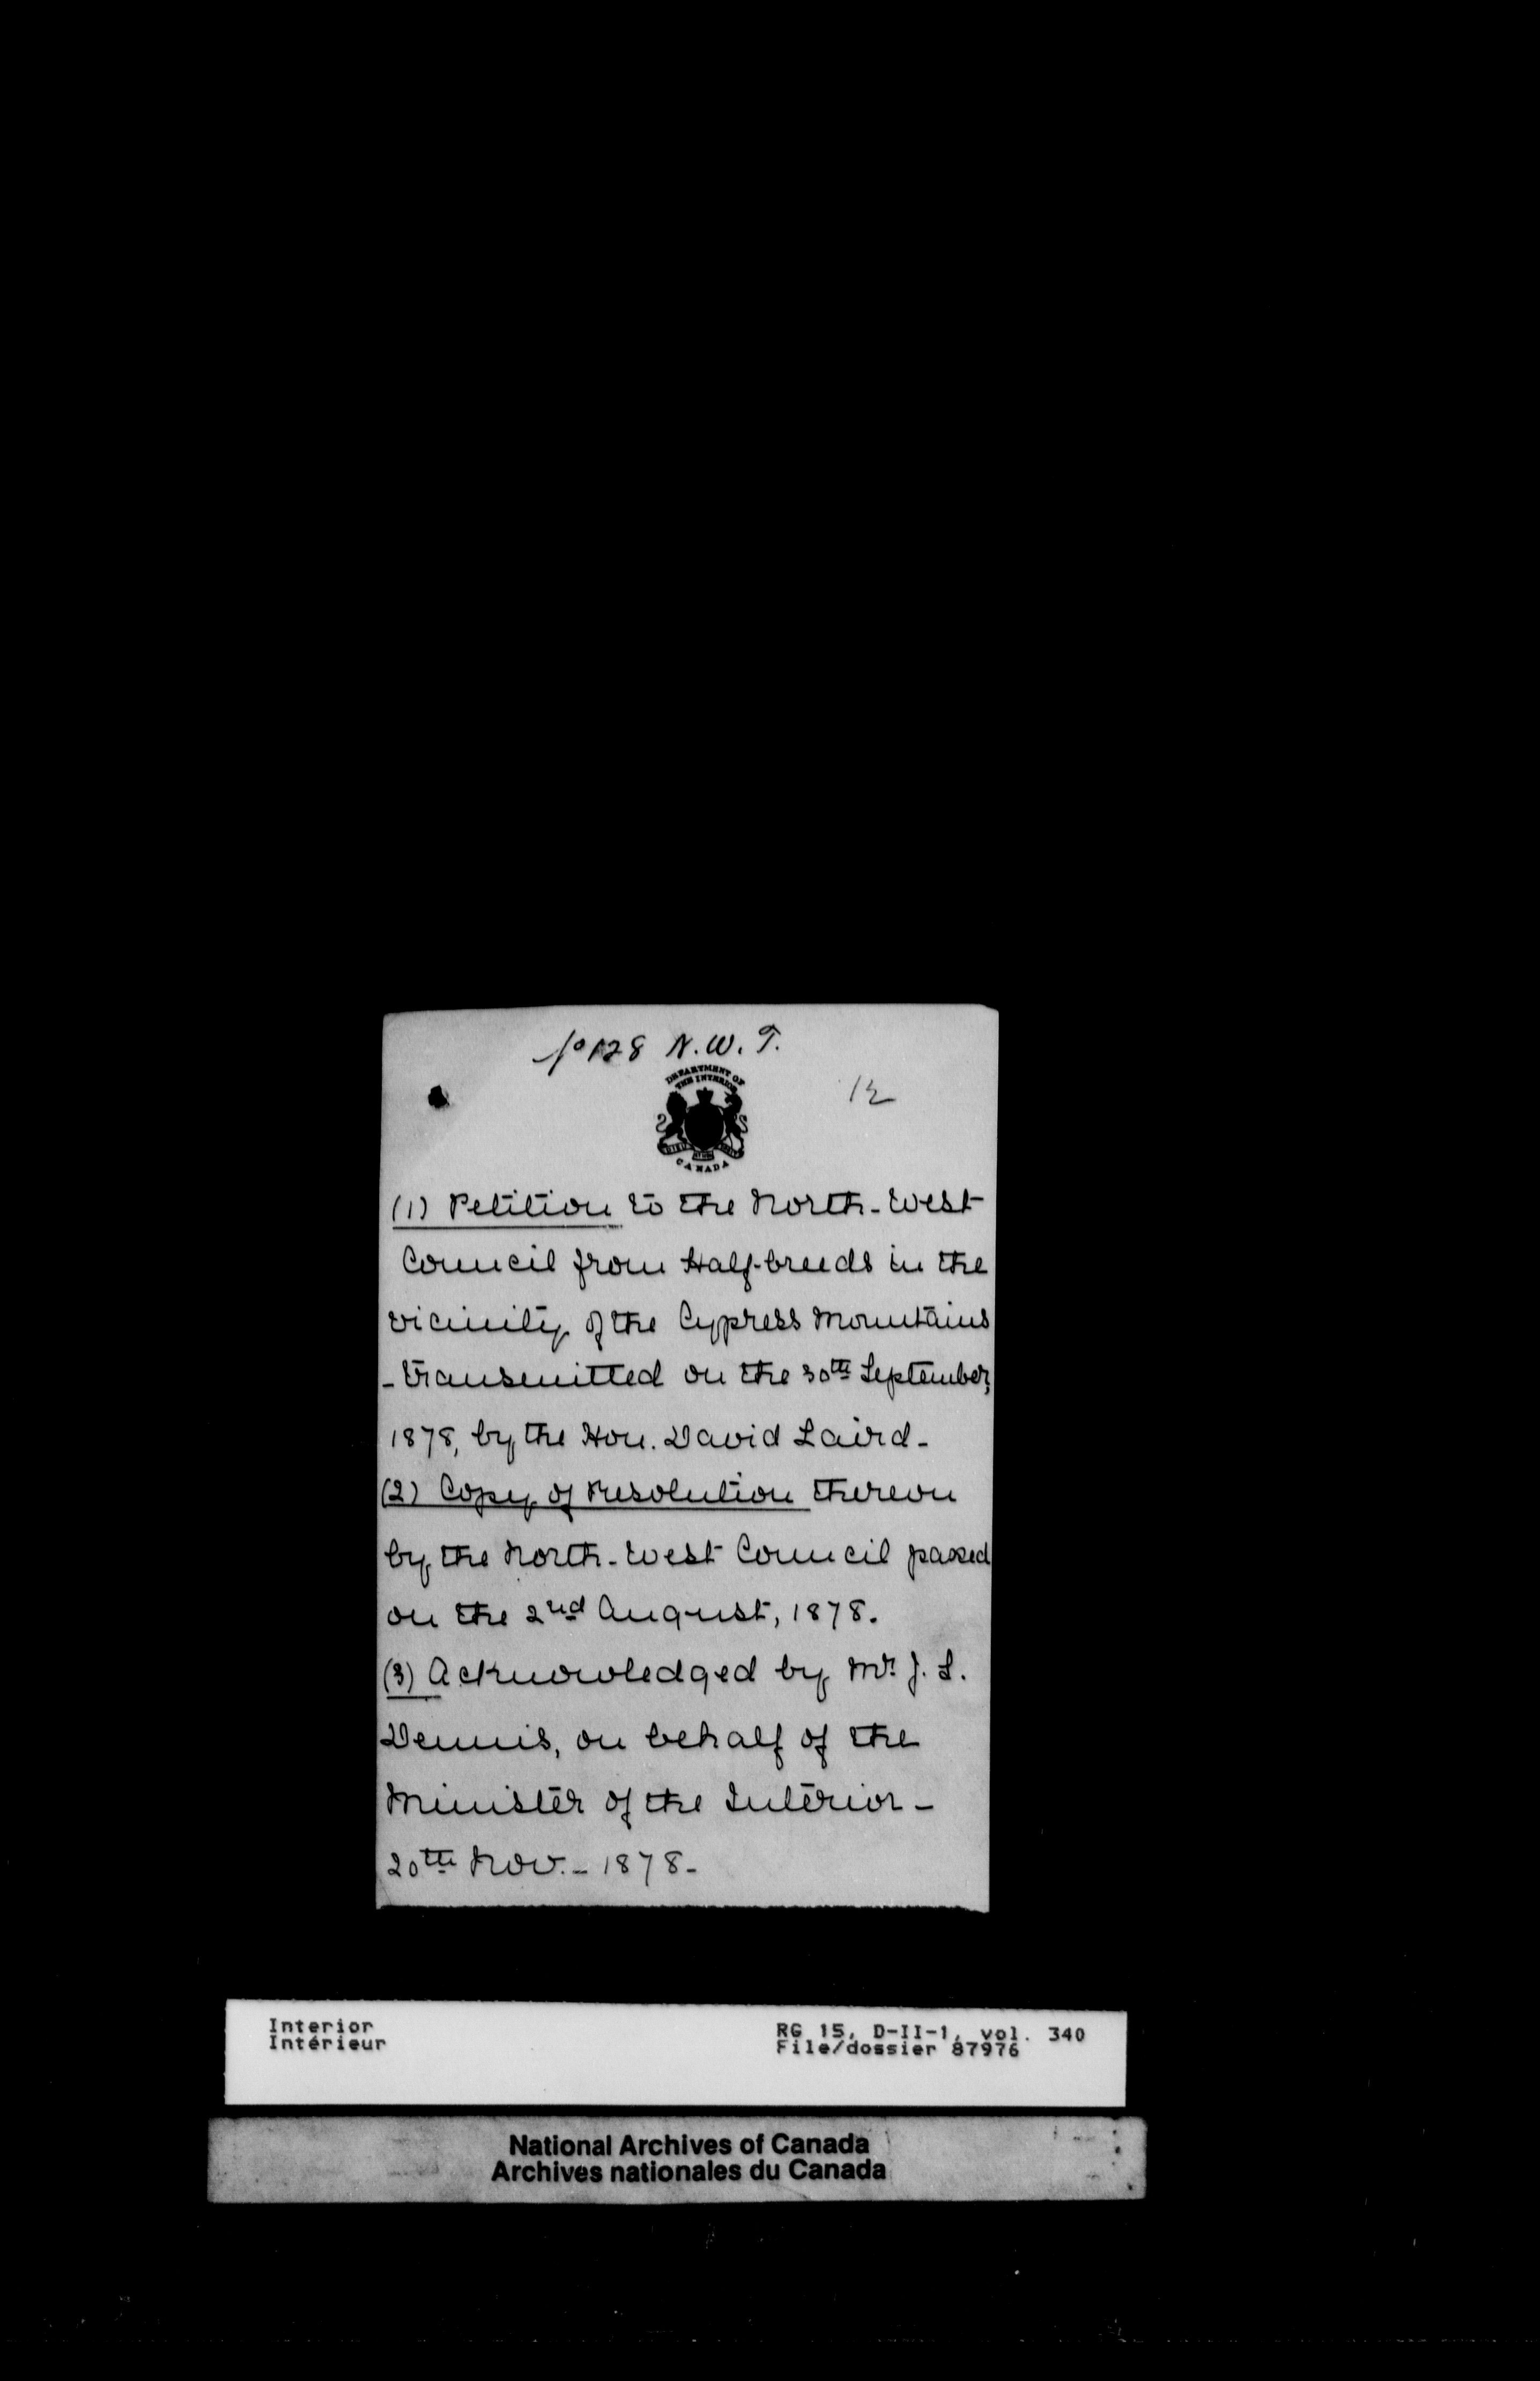 128 N.W.T.
DEPARTMENT OF
THE INTERIOR
CANADA
(1) Petition to the North-West
Council from Half-breeds in the
vicinity of the Cypress Mountains
- transmitted on the 30th September,
1878, by the Hon. David Laird -
(2) Copy of Resolution thereon
by the North-West Council passed
on the 2nd August, 1878.
(3) Acknowledged by Mr. J. S.
Dennis, on behalf of the
Minister of the Interior -
20th Nov. - 1878 -
Interior
Intérieur
RG 15, D-II-1, vol. 340
File/dossier 87976
National Archives of Canada
Archives nationales du Canada